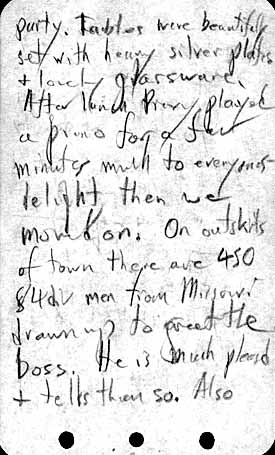 party. Tables were beautifully
set with heavy silver plates
+ lovely glassware.
After lunch Prexy played
a piano for a few
minutes much to everyones
delight then we
moved on. On outskirts
of town there are 450
84div men from Missouri
drawn up to greet the
boss. He is much pleased
+ tells them so. Also